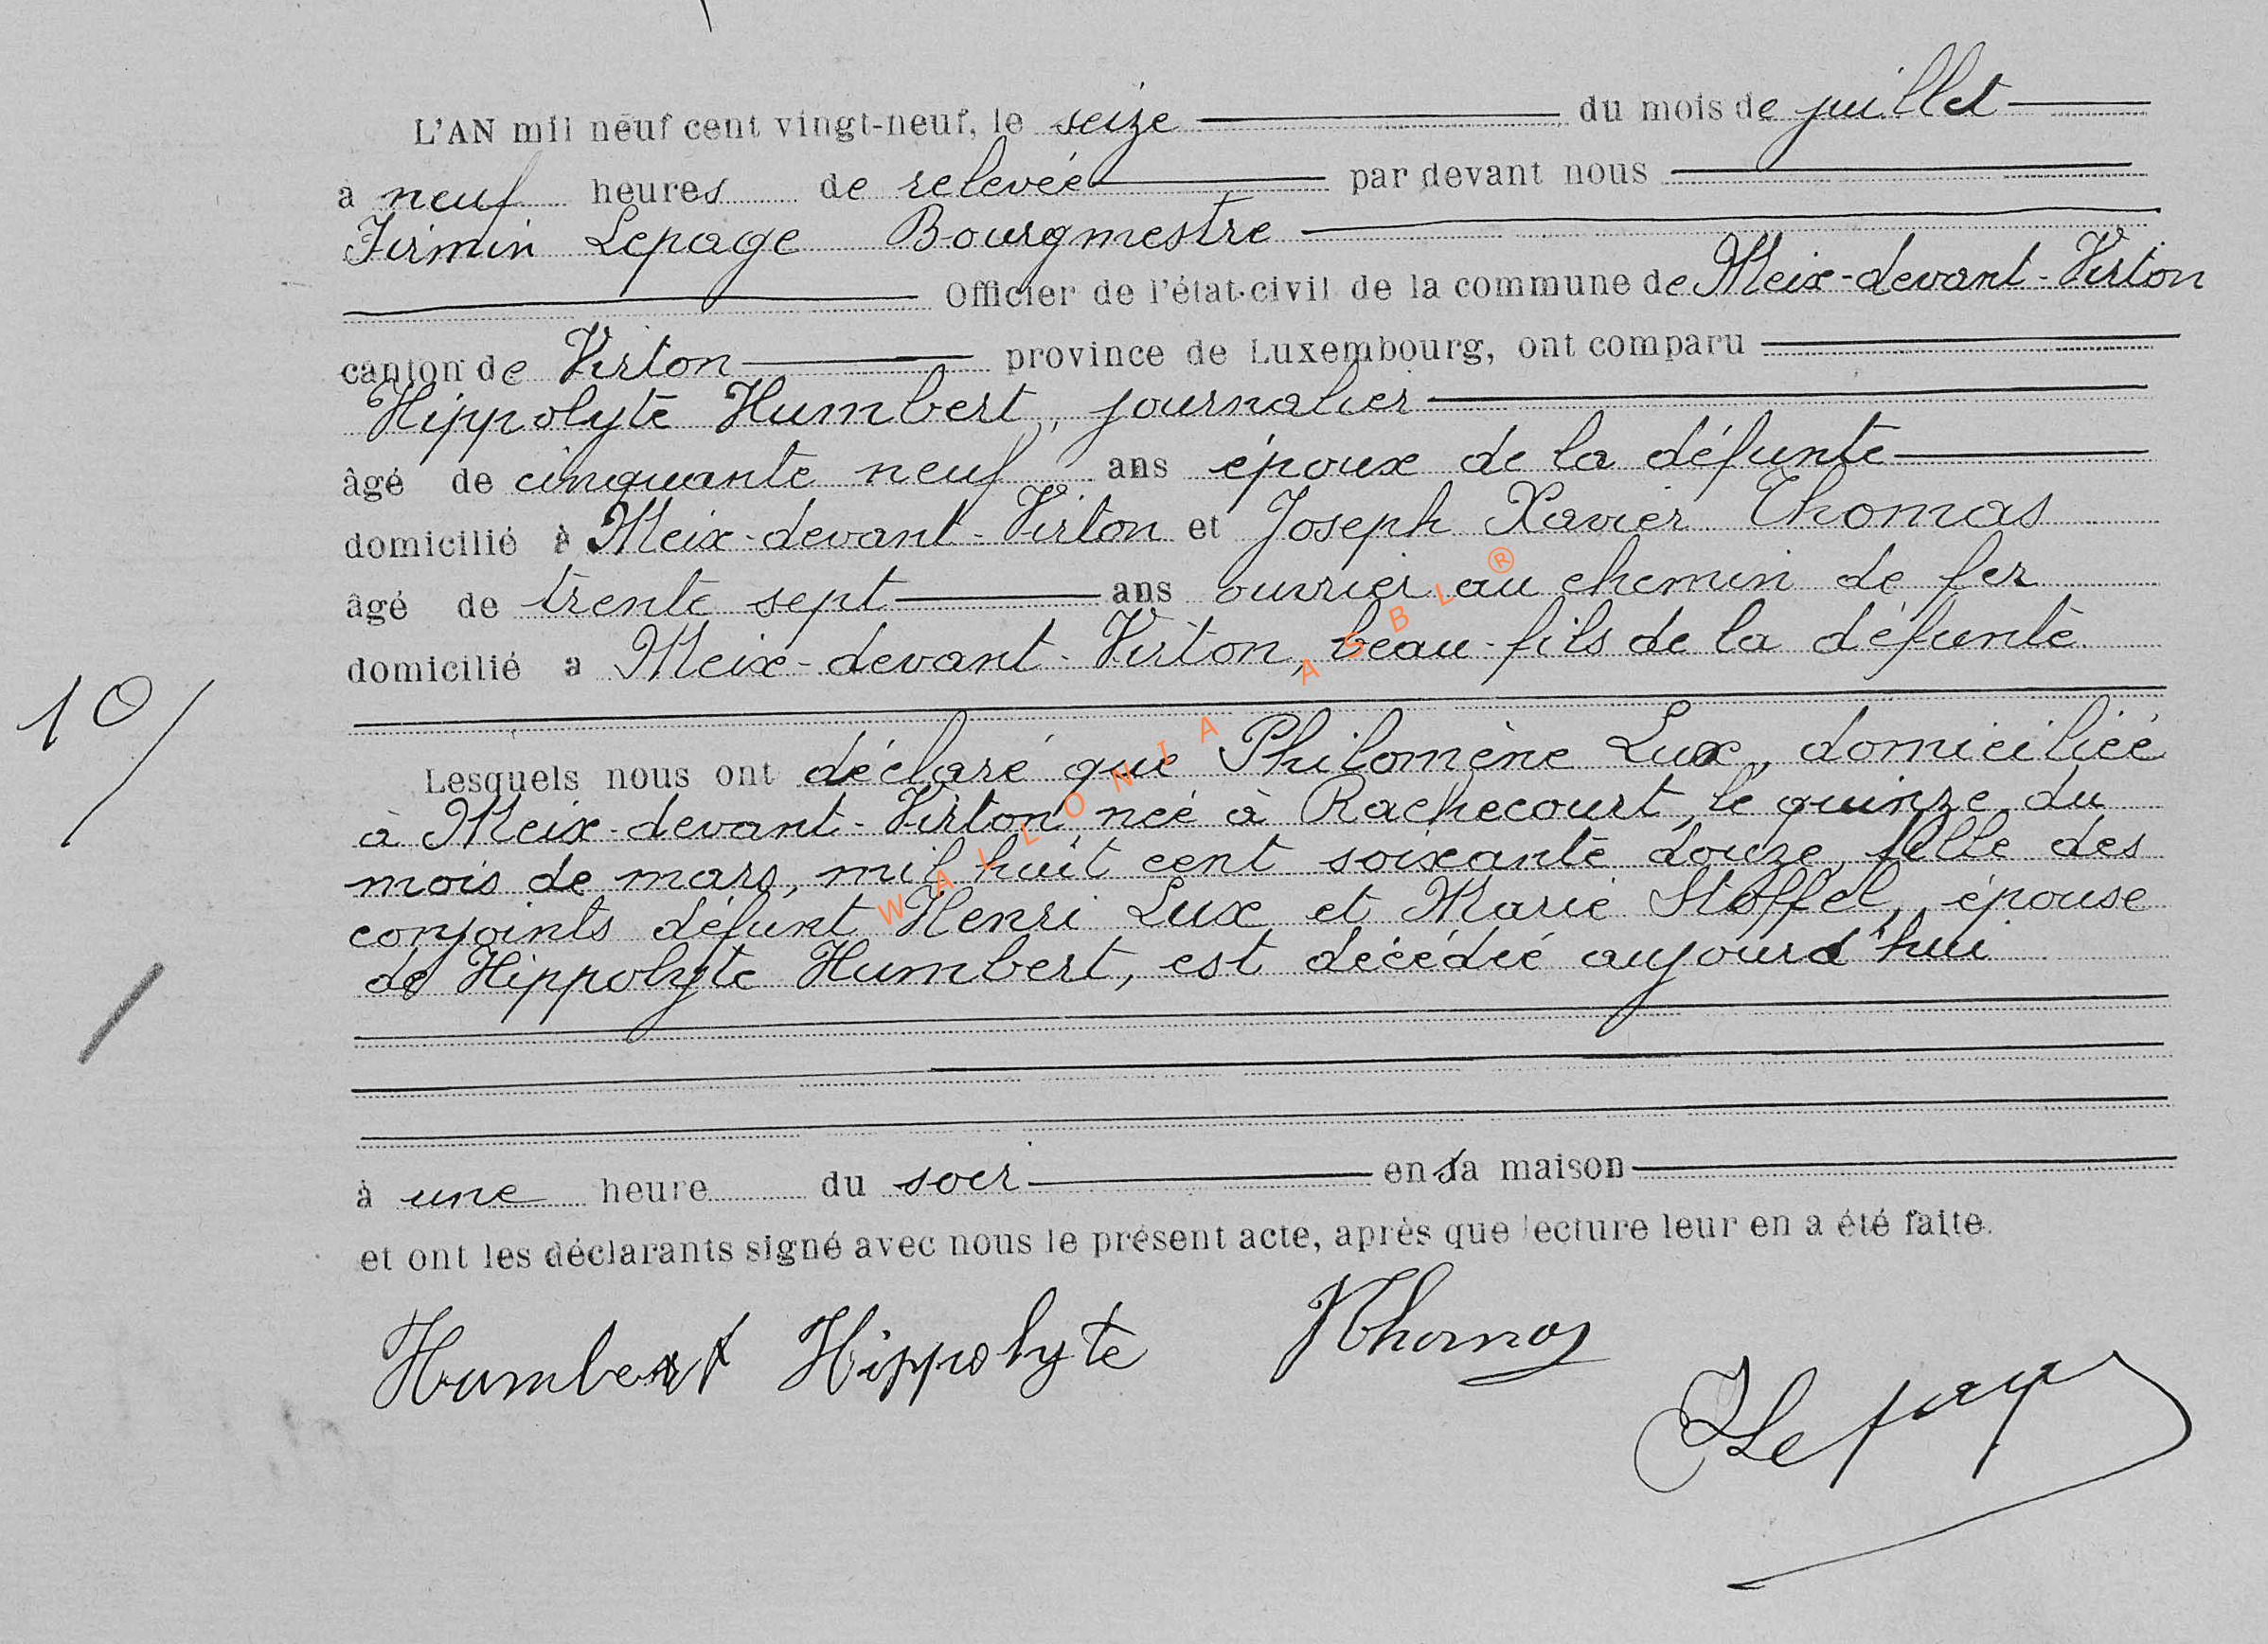 L'AN mil neuf cent vingt-neuf, le seize du mois de juillet
à neuf heures de relevée par devant nous
Firmin Lepage Bourgmestre
Officier de l'état-civil de la commune de Meix-devant-Virton
canton de Virton province de Luxembourg, ont comparu
Hippolyte Humbert, journalier
âgé de cinquante neuf ans époux de la défunte
domicilié à Meix-devant-Virton et Joseph Xavier Thomas
âgé de trente sept ans ouvrier au chemin de fer
domicilié a Meix-devant-Virton, beau-fils de la défunte.
10/
Lesquels nous ont déclaré que Philomène Lux, domiciliée
à Meix-devant-Virton née à Rachecourt, le quinze du
mois de mars, mil huit cent soixante douze, fille des
conjoints défunt Henri Lux et Marie Stoffel, épouse
de Hippolyte Humbert, est décédée aujourd'hui
à une heure du soir en sa maison
et ont les déclarants signé avec nous le présent acte, après que lecture leur en a été faite.
Humbert Hippolyte JThomas
FLepage
WALLONIA ASBL ®